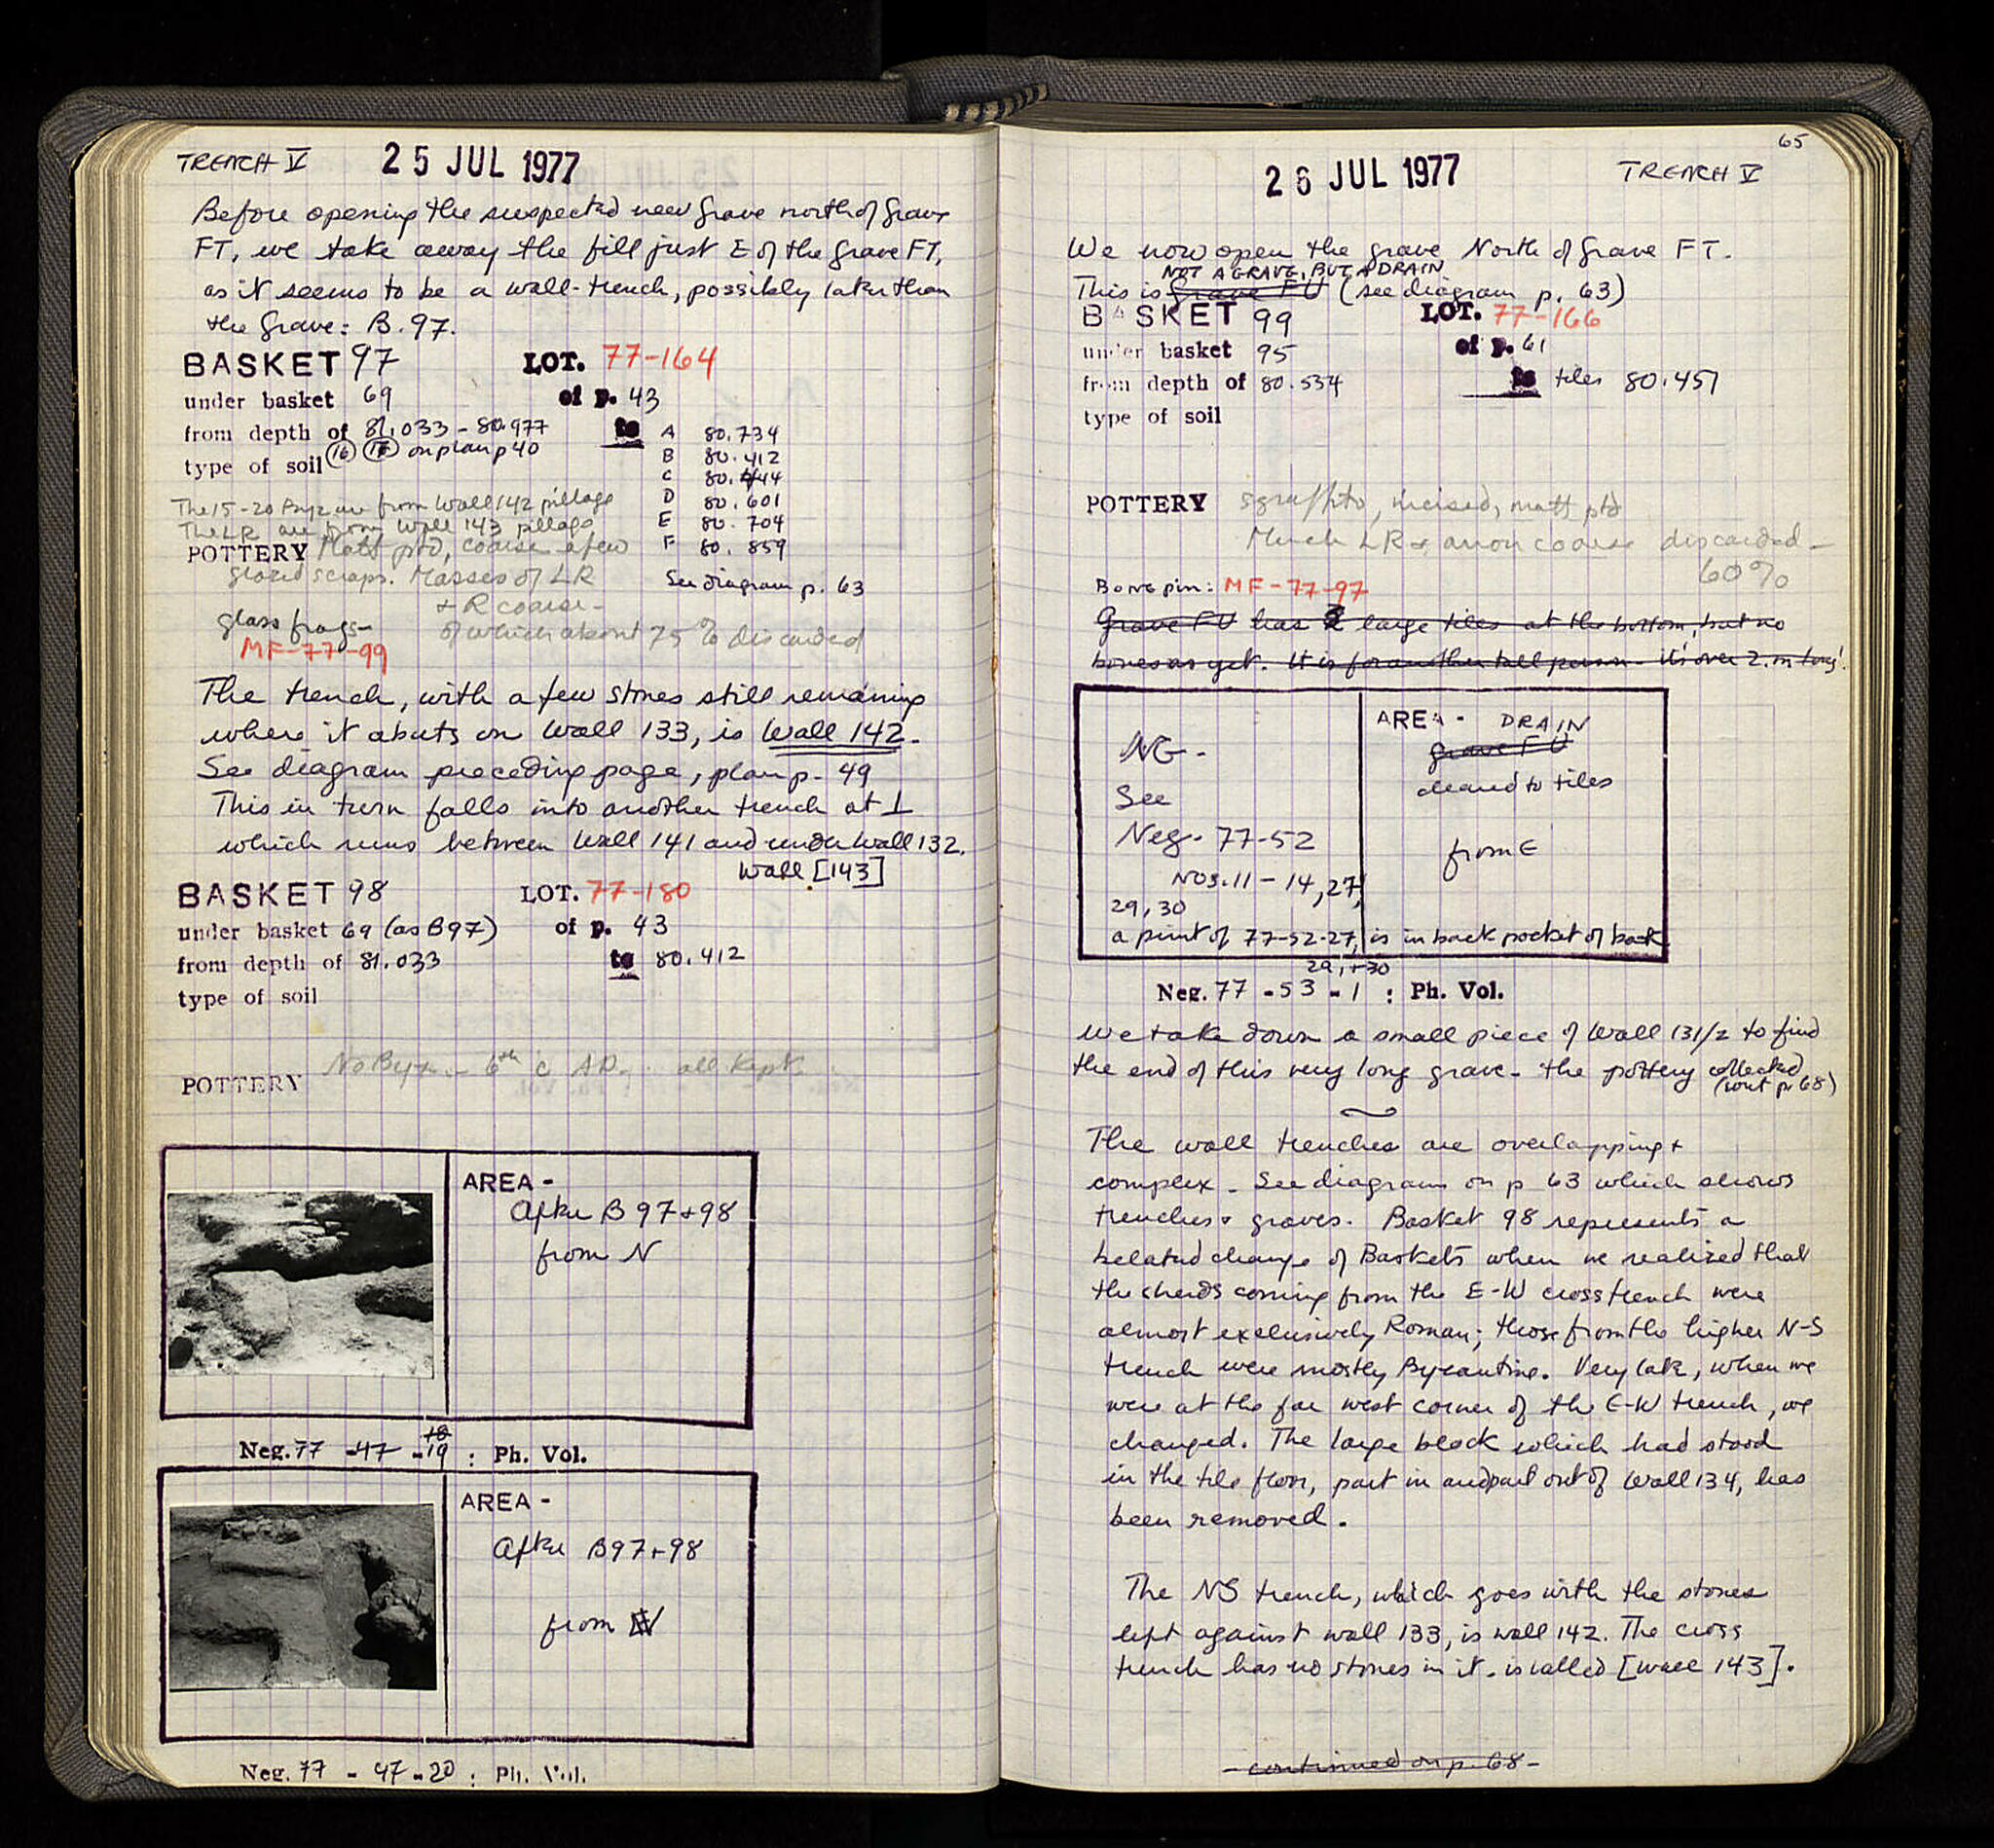 TRENCH V 25 JUL 1977
Before opening the suspected new grave north of Grave
FT, we take away the fill just E of the Grave FT,
as it seems to be a wall-trench, possibly later than
the Grave: B. 97.
BASKET 97 LOT. 77-164
under basket 69 of p. 43
from depth of 81.033 - 80.977 to A 80.734
type of soil (16) (17) on plan p 40 B 80.412
C 80.444
D 80.601
E 80.704
F 80.859
See diagram p. 63
The 15-20 Byz are from Wall 142 pillage
The LR are from Wall 143 pillage
POTTERY Matt ptd, coarse a few
glazed scraps. Masses of LR
+ R coarse -
of which about 75% discarded
glass frags-
MF-77-99
The trench, with a few stones still remaining
where it abuts on Wall 133, is Wall 142.
See diagram preceding page, plan p. 49
This in turn falls into another trench at ⊥
which runs between Wall 141 and under Wall 132.
Wall [143]
BASKET 98 LOT. 77-180
under basket 69 (as B97) of p. 43
from depth of 81.033 to 80.412
type of soil
POTTERY No Byz - 6th c AD. all kept.
AREA -
After B 97+98
from N
Neg. 77 - 47 - 18 19 : Ph. Vol.
AREA -
After B97+98
from W
Neg. 77 - 47 - 20 : Ph. Vol.
65
26 JUL 1977 TRENCH V
We now open the grave North of Grave FT.
NOT A GRAVE, BUT A DRAIN
This is Grave FU (see diagram p. 63)
BASKET 99 LOT. 77-166
under basket 95 of p. 61
from depth of 80.534 to tiles 80.451
type of soil
POTTERY sgraffito, incised, matt ptd
Much LR + coarse discarded -
60%
Bone pin: MF-77-97
Grave FU has 2 large tiles at the bottom, but no
bones as yet. It is for another tall person - it's over 2. m long!
NG -
See
Neg. 77-52
Nos. 11 - 14, 27,
29, 30
AREA - DRAIN
Grave FU
cleared to tiles
from E
a print of 77-52-27, is in back pocket of book
29, +30
Neg. 77 - 53 - 1 : Ph. Vol.
We take down a small piece of Wall 131/2 to find
the end of this very long grave - the pottery collected
(cont p. 68)
The wall trenches are overlapping +
complex - See diagram on p 63 which shows
trenches + graves. Basket 98 represents a
belated change of Baskets when we realized that
the sherds coming from the E-W cross trench were
almost exclusively Roman; those from the higher N-S
trench were mostly Byzantine. Very late, when we
were at the far west corner of the E-W trench, we
changed. The large block which had stood
in the tile floor, part in and part out of Wall 134, has
been removed.
The NS trench, which goes with the stones
left against wall 133, is wall 142. The cross
trench has no stones in it - is called [wall 143].
- continued on p. 68 -